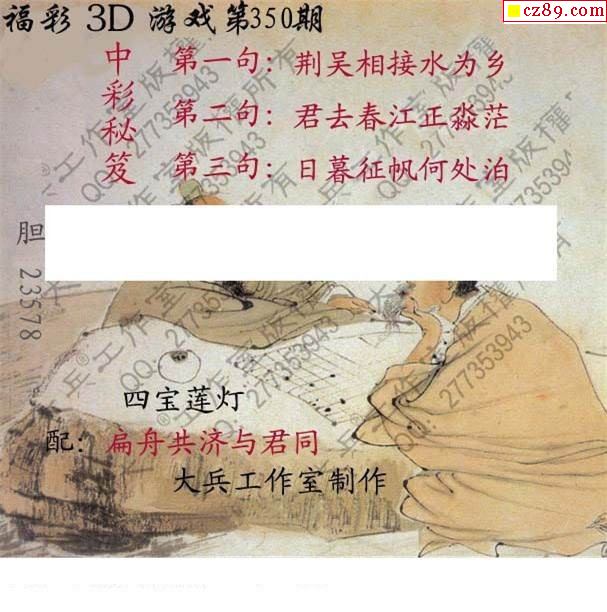 福彩 3D 游戏第350期
cz89.com
中彩秘笈
第一句：荆吴相接水为乡
第二句：君去春江正淼茫
第三句：日暮征帆何处泊
胆 23578
四宝莲灯
配：扁舟共济与君同
大兵工作室制作
大兵®工作室版权所有
QQ：277353943